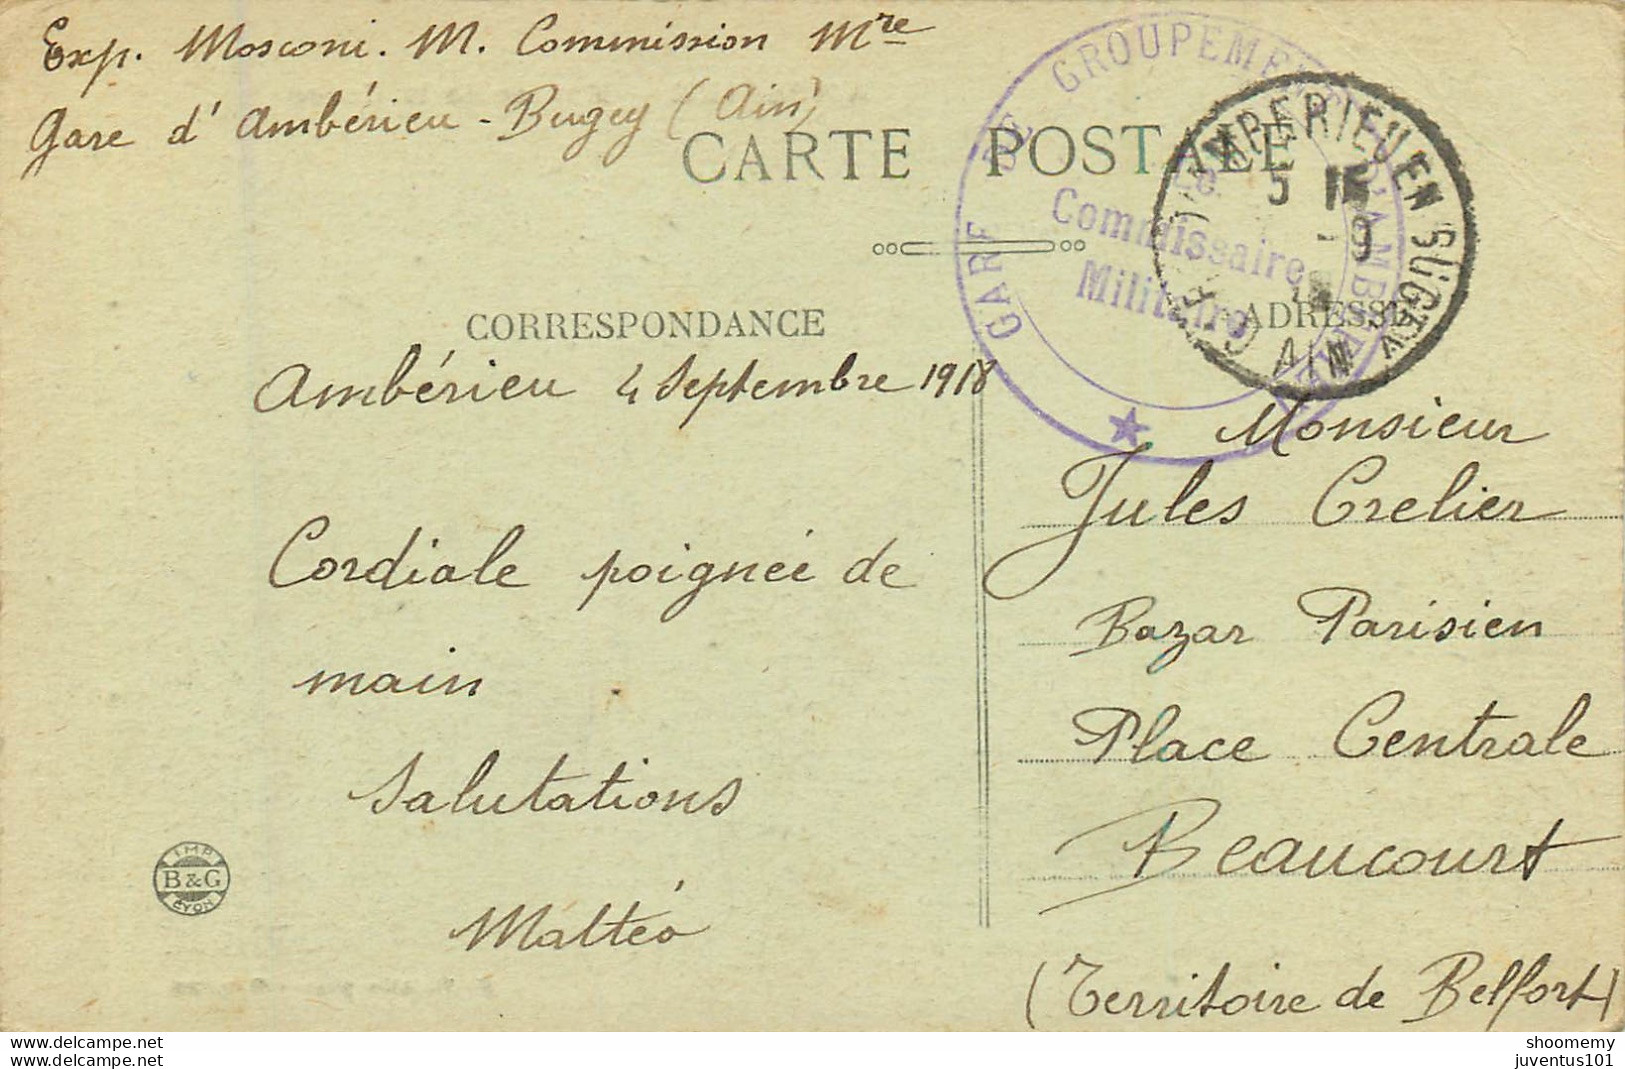 Exp. Mosconi. M. Commission Mre
Gare d'Ambérieu - Bugey (Ain)
CARTE POSTALE
GARE DE GROUPEMENT D'AMBERIEU
Le
Commissaire
Militaire
AMBERIEU EN BUGEY
5
9
AIN
CORRESPONDANCE
ADRESSE
Ambérieu 4 Septembre 1918
Monsieur
Jules Crelier
Cordiale poignée de
Bazar Parisien
main
Place Centrale
Salutations
Beaucourt
IMP.
B&G
LYON
Mattéo
(Territoire de Belfort)
www.delcampe.net
www.delcampe.net
shoomemy
juventus101